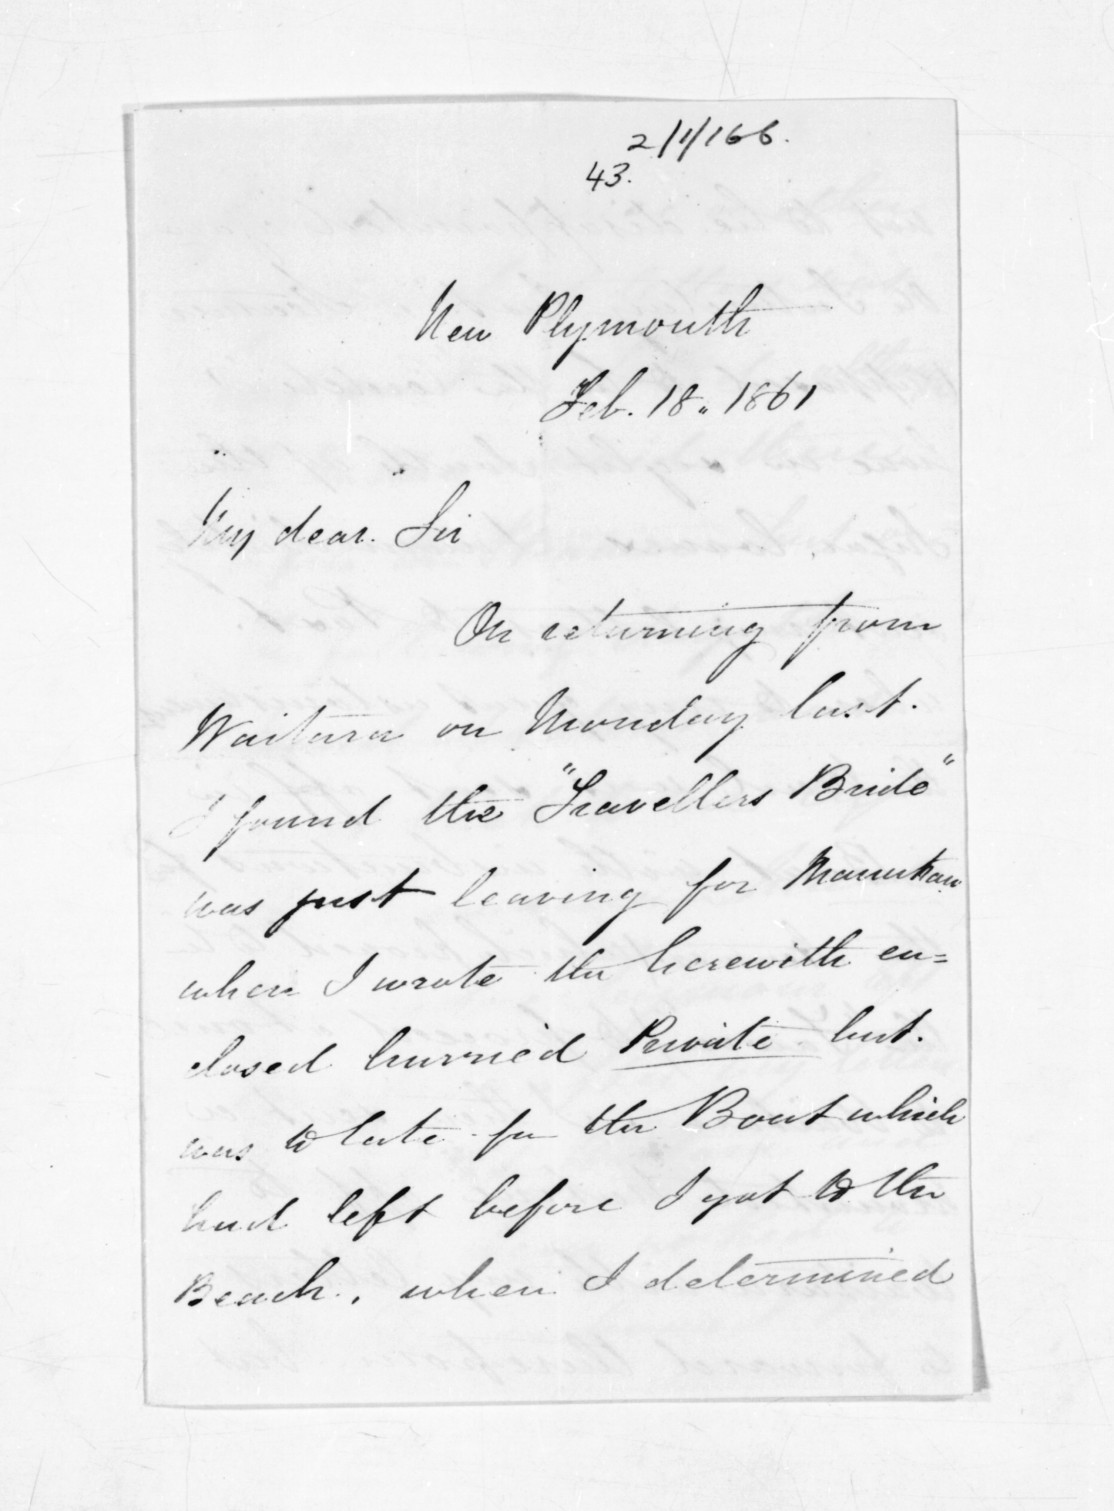 2/1/166.
43.
New Plymouth
Feb. 18. 1861
My dear Sir
On returning from
Waitara on Monday last.
I found the "Travellers Bride"
was just leaving for Manukau
when I wrote the herewith en=
closed hurried Private but.
was to late for the Boat which
had left before I got to the
Beach., when I determined